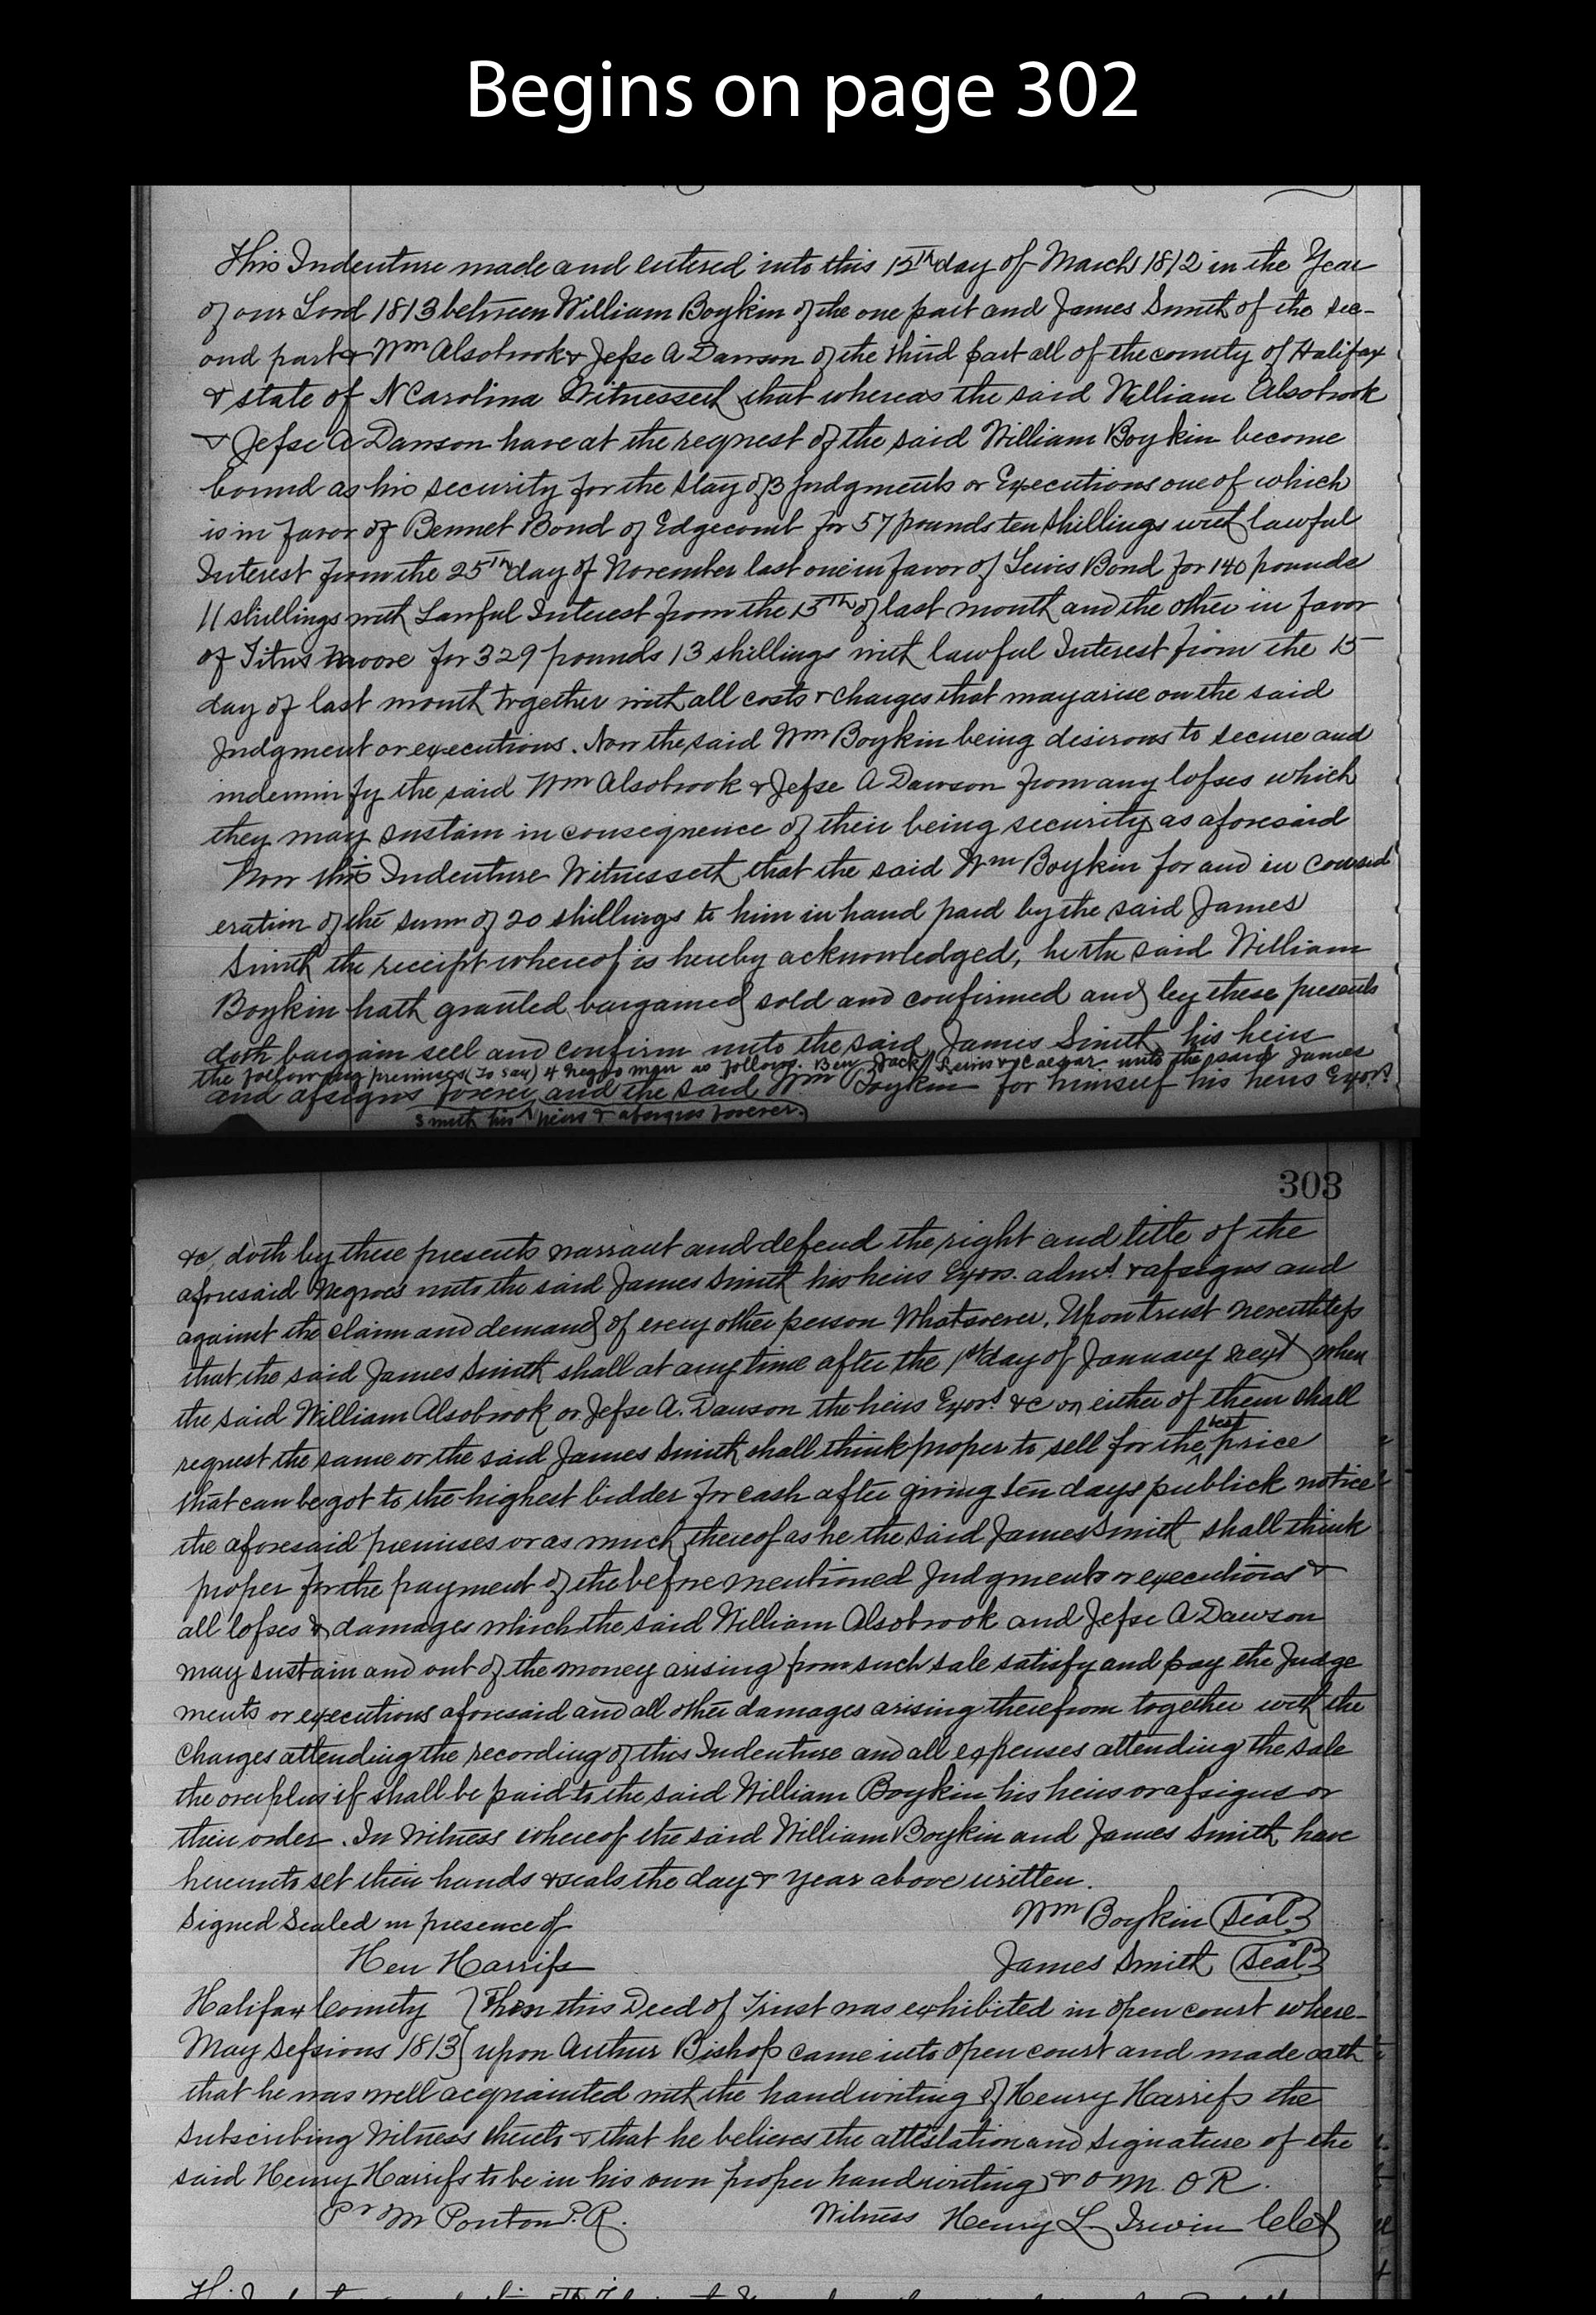 Begins on page 302
This Indenture made and entered into this 15th day of March 1812 in the Year
of our Lord 1813 between William Boykin of the one part and James Smith of the sec-
ond part & Wm Alsobrook & Jesse A Dawson of the third part all of the county of Halifax
& state of N Carolina Witnesseth that whereas the said William Alsobrook
& Jesse A Dawson have at the request of the said William Boykin become
bound as his security for the stay of 3 Judgments or Executions one of which
is in favor of Bennet Bond of Edgecomb for 57 pounds ten shillings with lawful
Interest from the 25th day of November last one in favor of Lewis Bond for 140 pounds
11 shillings with Lawful Interest from the 15th of last month and the other in favor
of Titus Moore for 329 pounds 13 shillings with lawful Interest from the 15
day of last month together with all costs & charges that may arise on the said
Judgment or executions. Now the said Wm Boykin being desirous to secure and
indemnify the said Wm Alsobrook & Jesse A Dawson from any losses which
they may sustain in consequence of their being security as aforesaid
Now this Indenture Witnesseth that the said Wm Boykin for and in consid
eration of the sum of 20 shillings to him in hand paid by the said James
Smith the receipt whereof is hereby acknowledged, he the said William
Boykin hath granted bargained sold and confirmed and by these presents
doth bargain sell and confirm unto the said James Smith his heirs
the following premises (To say) 4 negro men as follows. Ben, Jack, Lewis & Caesar unto the said James
and assigns forever and the said Wm Boykin for himself his heirs Exors.
Smith his heirs & assigns forever.
303
&c, doth by these presents warrant and defend the right and title of the
aforesaid Negroes unto the said James Smith his heirs Exors. adms. & assigns and
against the claim and demand of every other person Whatsoever. Upon trust nevertheless
that the said James Smith shall at any time after the 1st day of January next when
the said William Alsobrook or Jesse A. Dawson the heirs Exors. &c or either of them shall
request the same or the said James Smith shall think proper to sell for the best price
that can be got to the highest bidder for cash after giving ten days publick notice
the aforesaid premises or as much thereof as he the said James Smith shall think
proper for the payment of the before mentioned Judgments or executions &
all losses & damages which the said William Alsobrook and Jesse A Dawson
may sustain and out of the money arising from such sale satisfy and pay the Judge
ments or executions aforesaid and all other damages arising therefrom together with the
charges attending the recording of this Indenture and all expenses attending the sale
the overplus if shall be paid to the said William Boykin his heirs or assigns or
their order. In Witness whereof the said William Boykin and James Smith have
hereunto set their hands & seals the day & year above written.
Signed Sealed in presence of Wm Boykin (Seal)
Hen Harriss James Smith (Seal)
Halifax County } Then this Deed of Trust was exhibited in open court where-
May Sessions 1813 } upon Arthur Bishop came into open court and made oath
that he was well acquainted with the handwriting of Henry Harriss the
subscribing Witness thereto & that he believes the attestation and signature of the
said Henry Harriss to be in his own proper handwriting & O M. O R.
Pr M Ponton P.R. Witness Henry L Irwin Clek